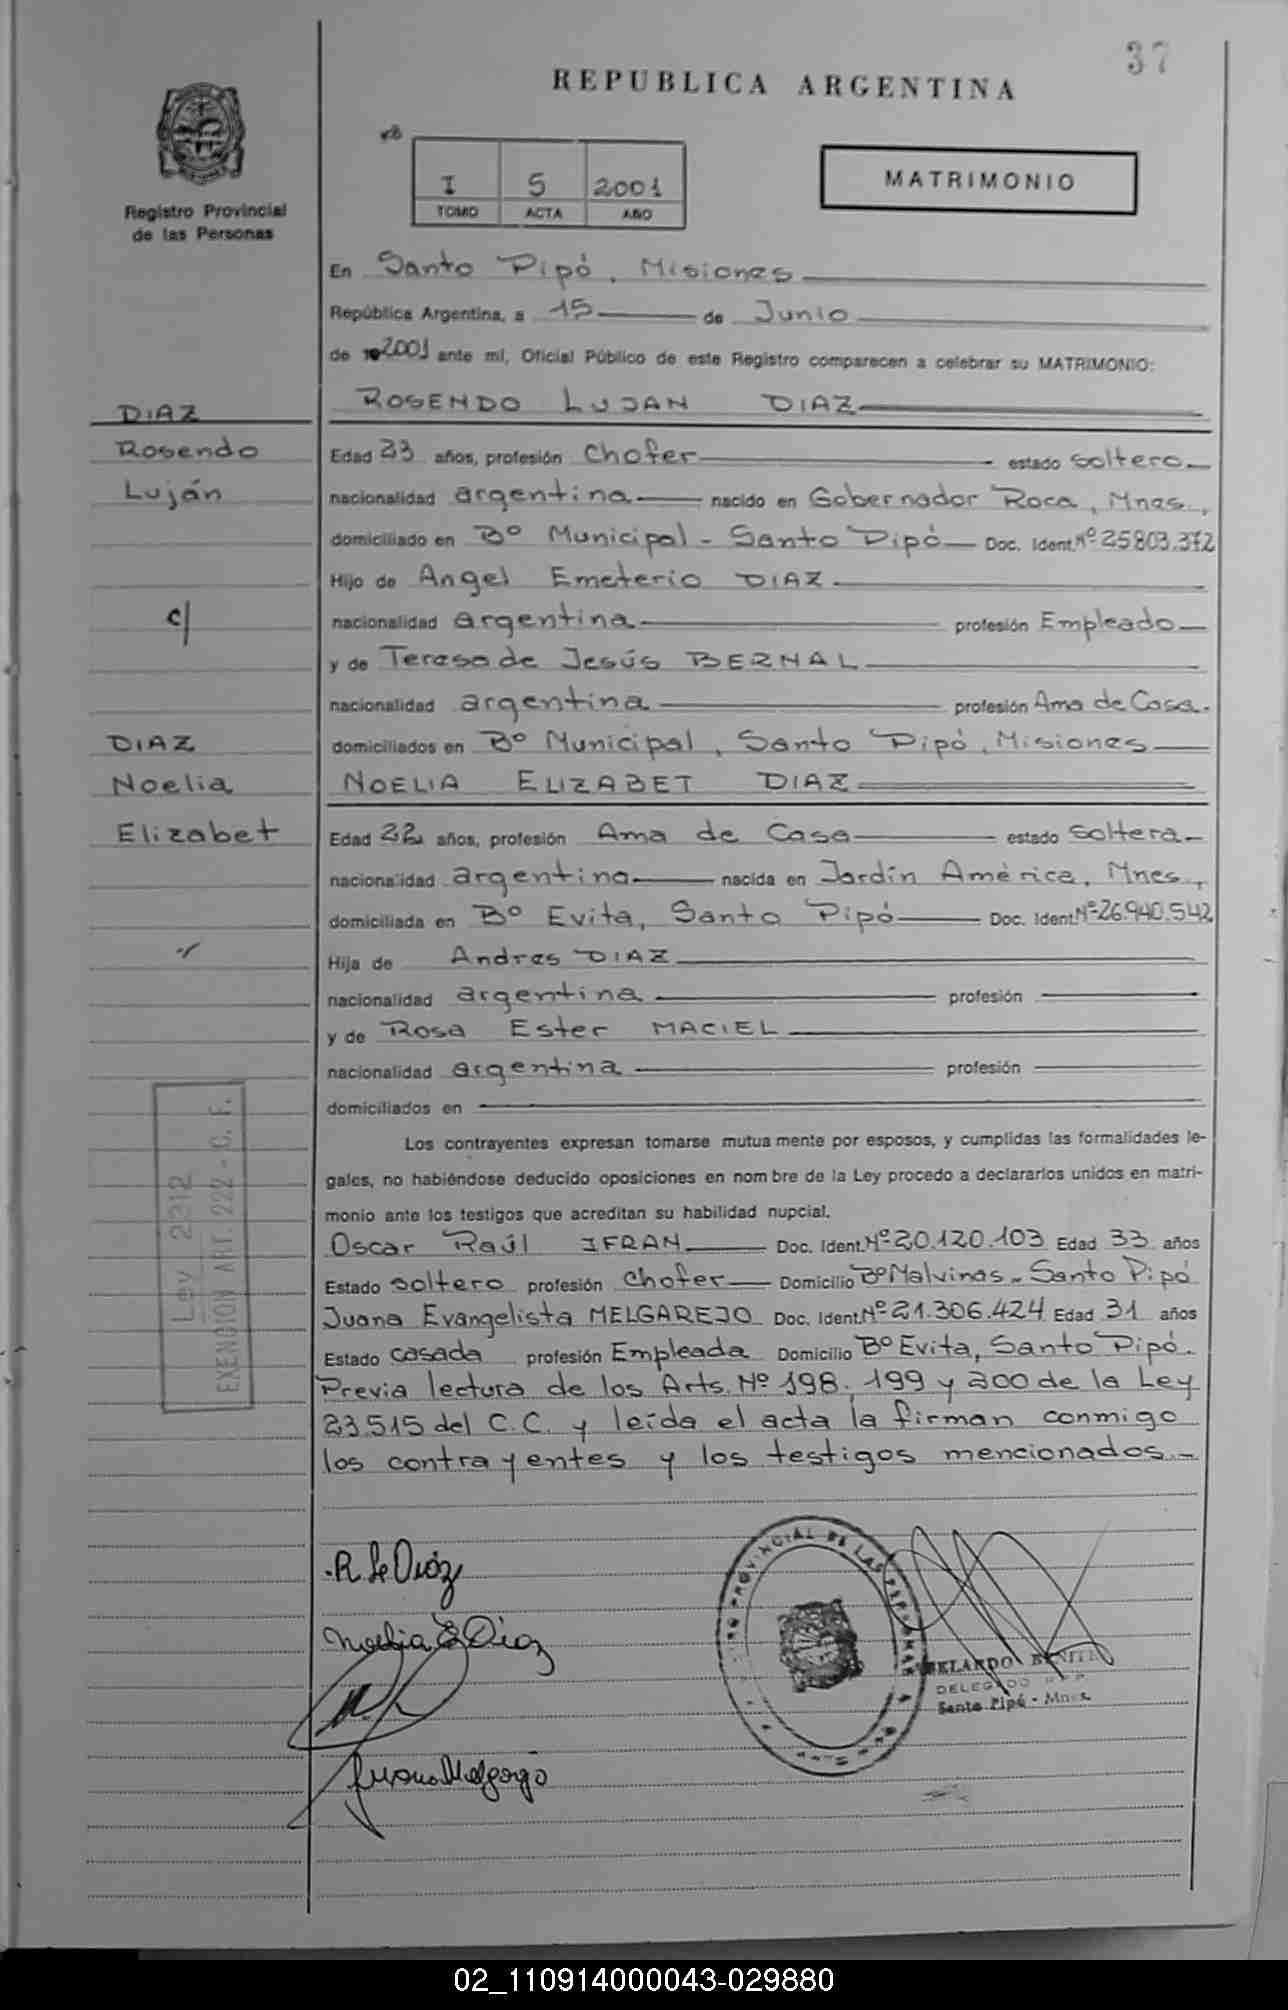 37
REPUBLICA ARGENTINA
I 5 2001
TOMO ACTA AÑO
MATRIMONIO
Registro Provincial
de las Personas
En Santo Pipó, Misiones
República Argentina, a 15 de Junio
de 2001 ante mí, Oficial Público de este Registro comparecen a celebrar su MATRIMONIO:
DIAZ
ROSENDO LUJAN DIAZ
Rosendo
Edad 23 años, profesión Chofer estado soltero
Luján
nacionalidad argentina nacido en Gobernador Roca, Mnes.,
domiciliado en Bº Municipal - Santo Pipó Doc. Ident. Nº 25.803.372
Hijo de Angel Emeterio DIAZ
c/
nacionalidad argentina profesión Empleado
y de Teresa de Jesús BERNAL
nacionalidad argentina profesión Ama de Casa.
DIAZ
domiciliados en Bº Municipal, Santo Pipó, Misiones
Noelia
NOELIA ELIZABET DIAZ
Elizabet
Edad 22 años, profesión Ama de Casa estado soltera
nacionalidad argentina nacida en Jardín América, Mnes.,
domiciliada en Bº Evita, Santo Pipó Doc. Ident. Nº 26.940.542
Hija de Andres DIAZ
nacionalidad argentina profesión
y de Rosa Ester MACIEL
nacionalidad argentina profesión
domiciliados en
Los contrayentes expresan tomarse mutua mente por esposos, y cumplidas las formalidades le-
gales, no habiéndose deducido oposiciones en nom bre de la Ley procedo a declararlos unidos en matri-
monio ante los testigos que acreditan su habilidad nupcial.
Oscar Raúl IFRAN Doc. Ident. Nº 20.120.103 Edad 33 años
Estado soltero profesión Chofer Domicilio Bº Malvinas - Santo Pipó
Juana Evangelista MELGAREJO Doc. Ident. Nº 21.306.424 Edad 31 años
Estado casada profesión Empleada Domicilio Bº Evita, Santo Pipó.
Previa lectura de los Arts. Nº 198, 199 y 200 de la Ley
23.515 del C.C. y leída el acta la firman conmigo
los contrayentes y los testigos mencionados.-
Ley 2312
EXENCION ART. 222 - C. F.
R. L. Diaz
Noelia E Diaz
PROVINCIAL DE LAS PERSONAS
DELEGADO R.P.P.
Santo Pipó - Mnes.
Juana Melgarejo
02_110914000043-029880